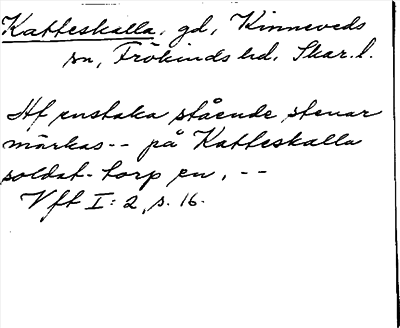 Katteskalla, gd, Kinneveds
sn, Frökinds hd. Skar. l.
Af enstaka stående stenar
märkas-- på Katteskalla
soldat-torp en, --
Vft I: 2, s. 16.